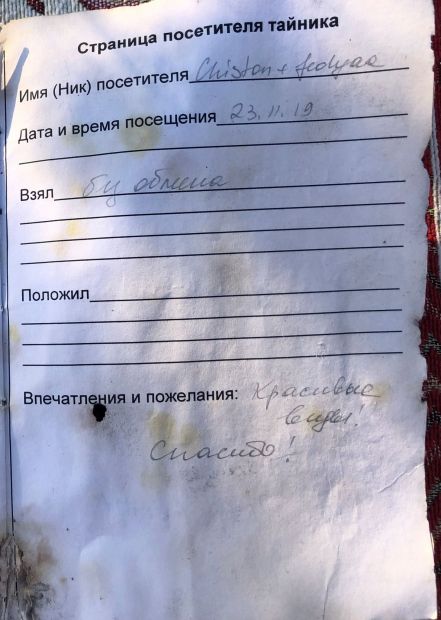 Страница посетителя тайника
Имя (Ник) посетителя Chiston + fedyaa
Дата и время посещения 23.11.19
Взял бу обмена
Положил
Впечатления и пожелания: Красивые
виды!
Спасибо!